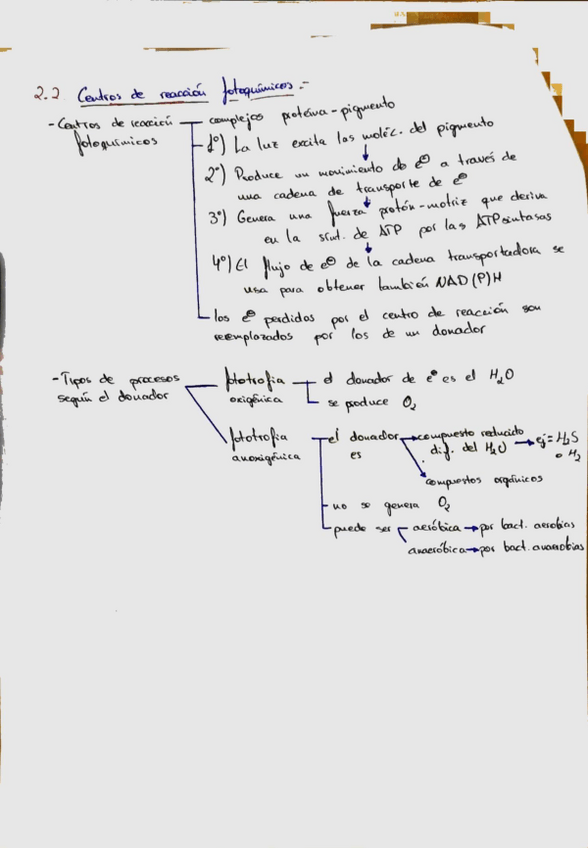 2.2 Centros de reacción fotoquímicos.-
- Centros de reacción fotoquímicos
complejos proteína-pigmento
1º) La luz excita las moléc. del pigmento
2º) Produce un movimiento de e⊖ a través de
una cadena de transporte de e⊖
3º) Genera una fuerza protón-motriz que deriva
en la sínt. de ATP por las ATPsintasas
4º) El flujo de e⊖ de la cadena transportadora se
usa para obtener también NAD(P)H
los e⊖ perdidos por el centro de reacción son
reemplazados por los de un donador
- Tipos de procesos
según el donador
fototrofia
oxigénica
el donador de e⊖ es el H₂O
se produce O₂
fototrofia
anoxigénica
el donador
es
compuesto reducido
dif. del H₂O
ej = H₂S
o H₂
compuestos orgánicos
no se genera O₂
puede ser
aeróbica → por bact. aerobias
anaeróbica → por bact. anaerobias